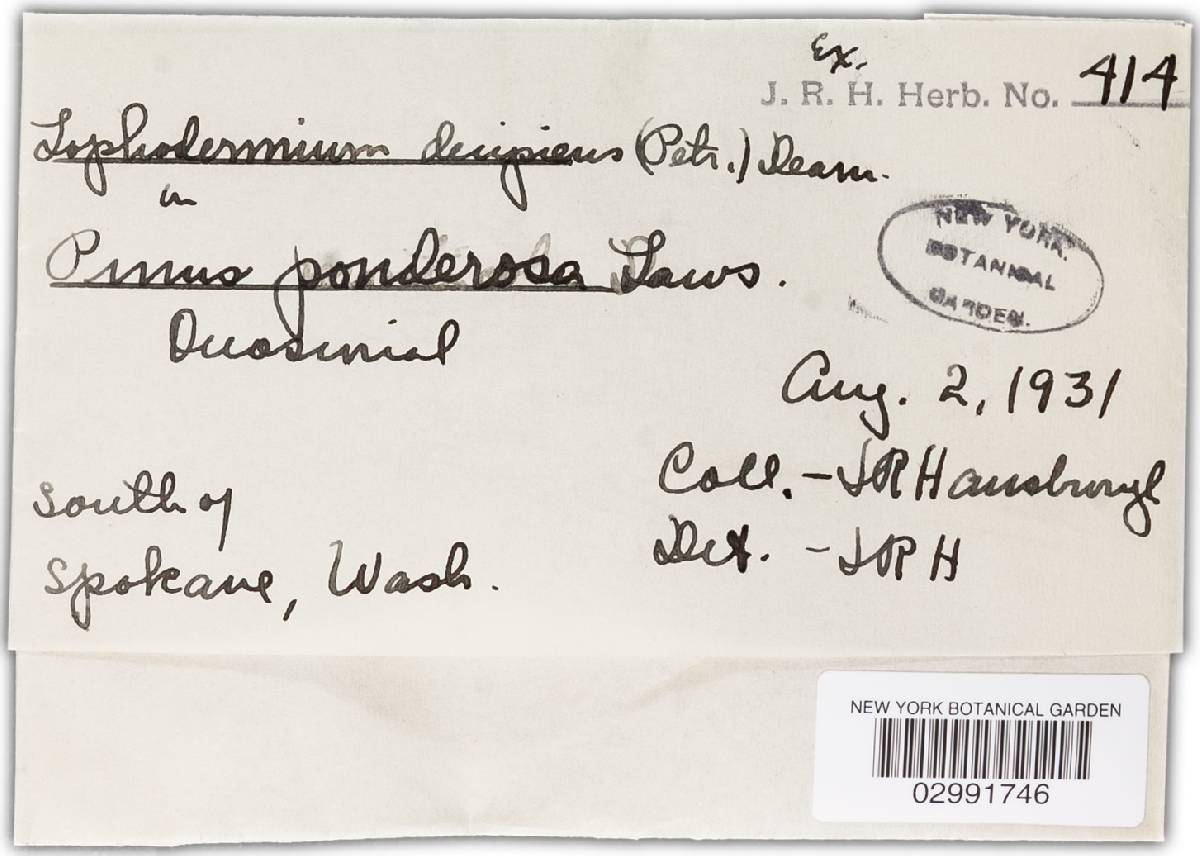 Ex.
J. R. H. Herb. No. 414
Lophodermium decipiens (Petr.) Dearn.
in
Pinus ponderosa Laws.
NEW YORK
BOTANICAL
GARDEN.
Aug. 2, 1931
Coll. - JR Hansbrough
Det. - JRH
South of
Spokane, Wash.
NEW YORK BOTANICAL GARDEN
02991746